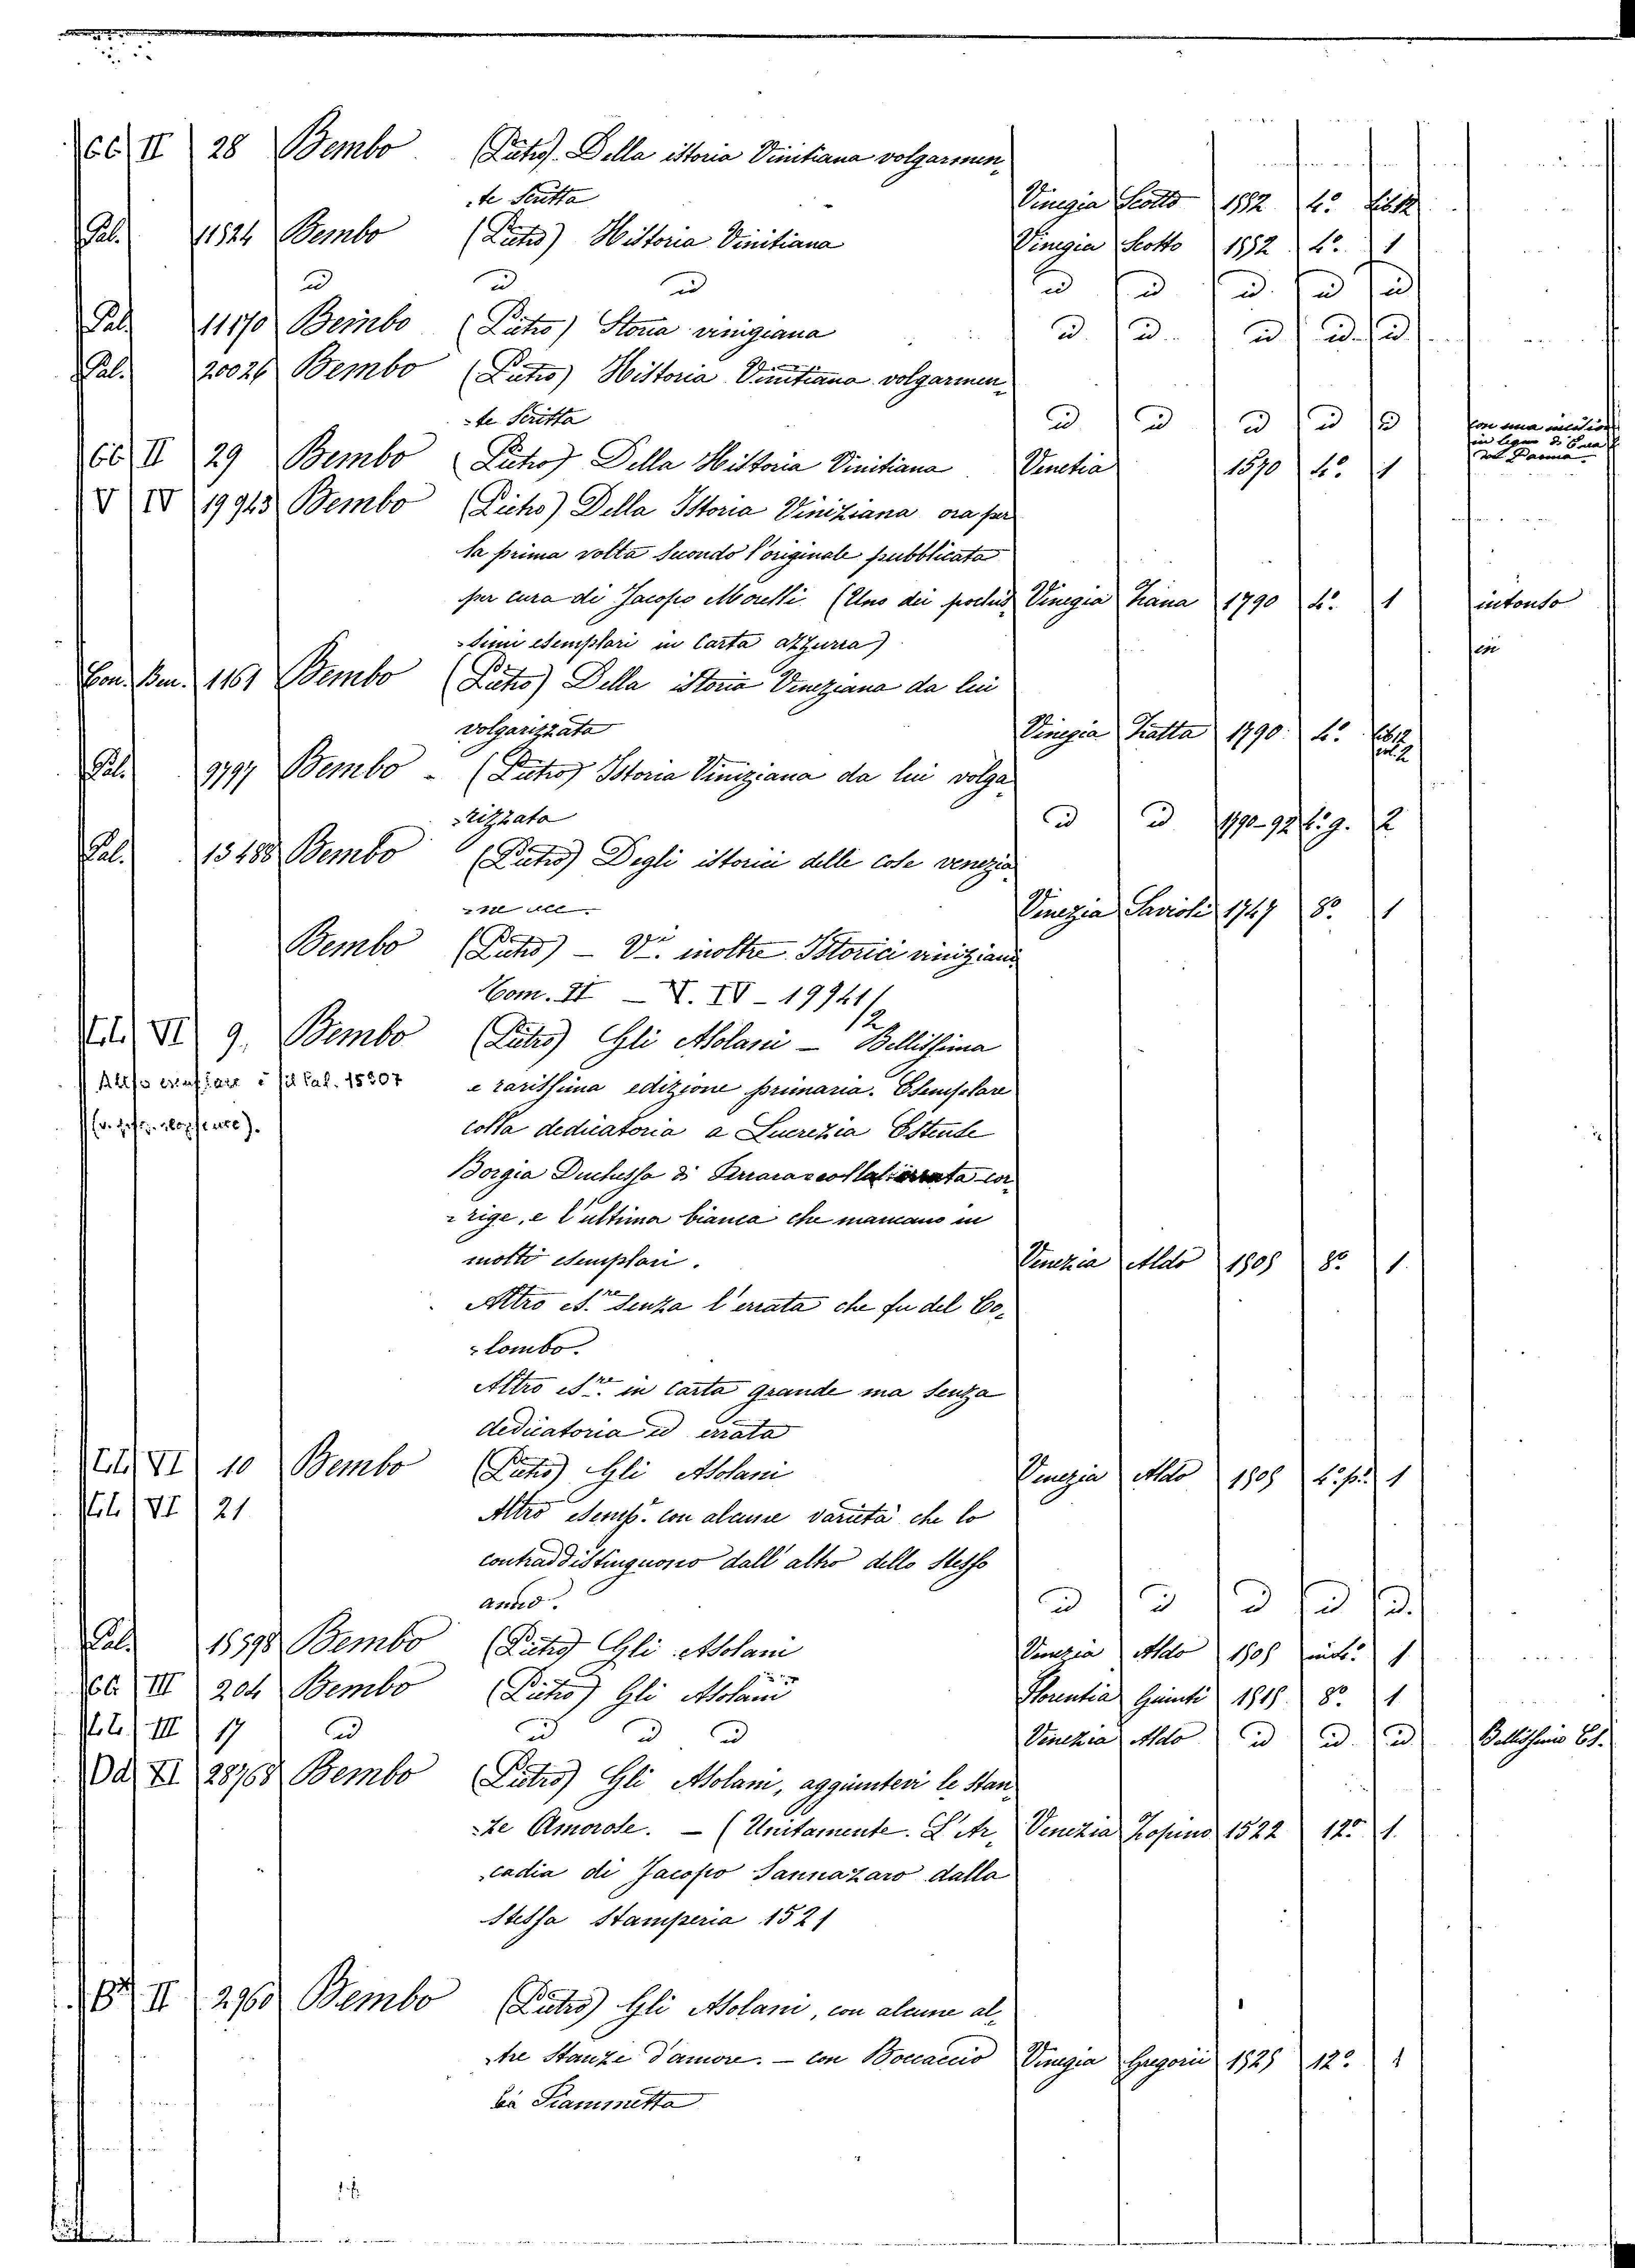 CC II 28 Bembo (Pietro). Della istoria Vinitiana volgarmen-
-te Scritta Vinegia Scotto 1552 4.º Lib. 12
Pal. 11524 Bembo (Pietro) Historia Vinitiana Vinegia Scotto 1552 4.º 1
id id id id id id id id
Pal. 11170 Bembo (Pietro) Storia vinigiana id id id id id
Pal. 20026 Bembo (Pietro) Historia Vinitiana volgarmen-
-te Scritta id id id id id con una incision
in legno di Enea
CC II 29 Bembo (Pietro) Della Historia Vinitiana Venetia 1570 4.º 1 Vico Parma
V IV 19943 Bembo (Pietro) Della Istoria Viniziana ora per
la prima volta secondo l'originale pubblicata
per cura di Jacopo Morelli. (Uno dei pochis- Vinegia Zana 1790 4.º 1 intonso
-simi esemplari in Carta azzurra)
Con. Bm. 1161 Bembo (Pietro) Della istoria Veneziana da lui
volgarizzata Vinegia Zatta 1790 4.º Lib. 12
vol. 2
Pal. 9797 Bembo - (Pietro) Istoria Viniziana da lui volga-
-rizzata id id 1790-92 4.º g. 2
Pal. 13488 Bembo (Pietro) Degli istorici delle cose venezia-
-ne Venezia Savioli 1747 8.º 1
Bembo (Pietro) - V.i inoltre Istorici viniziani
Tom. II - V. IV - 19941/2
VI 9. Bembo (Pietro) Gli Asolani - Bellissima
Altro esemplare è il Pal. 15507 e rarissima edizione primaria. Esemplare
colla dedicatoria a Lucrezia Estense
Borgia Duchessa di Ferrara e colla errata cor-
-rige, e l'ultima bianca che mancano in
molti esemplari. Venezia Aldo 1505 8.º 1
Altro es.re senza l'errata che fu del Co-
-lombo.
Altro es.re in carta grande ma senza
dedicatoria ed errata
VI 10 Bembo (Pietro) Gli Asolani Venezia Aldo 1505 4.º p.º 1
VI 21 Altro esemp.e con alcune varietà che lo
contraddistinguono dall'altro dello stesso
anno. id id id id id.
Pal. 15598 Bembo (Pietro) Gli Asolani Venezia Aldo 1505 in 4.º 1
CC III 204 Bembo (Pietro) Gli Asolani Florentia Giunti 1515 8.º 1
III 17 id id id id Venezia Aldo id id id Bellissimo Es.
Dd XI 28768 Bembo (Pietro) Gli Asolani, aggiuntevi le Stan-
-ze Amorose. - (Unitamente. L'Ar- Venezia Zopino 1522 12.º 1.
-cadia di Jacopo Sannazaro dalla
Stessa Stamperia 1521
II 2960 Bembo (Pietro) Gli Asolani, con alcune al-
-tre Stanze d'amore. - con Boccaccio Vinegia Gregorii 1525 12.º 1
la Fiammetta